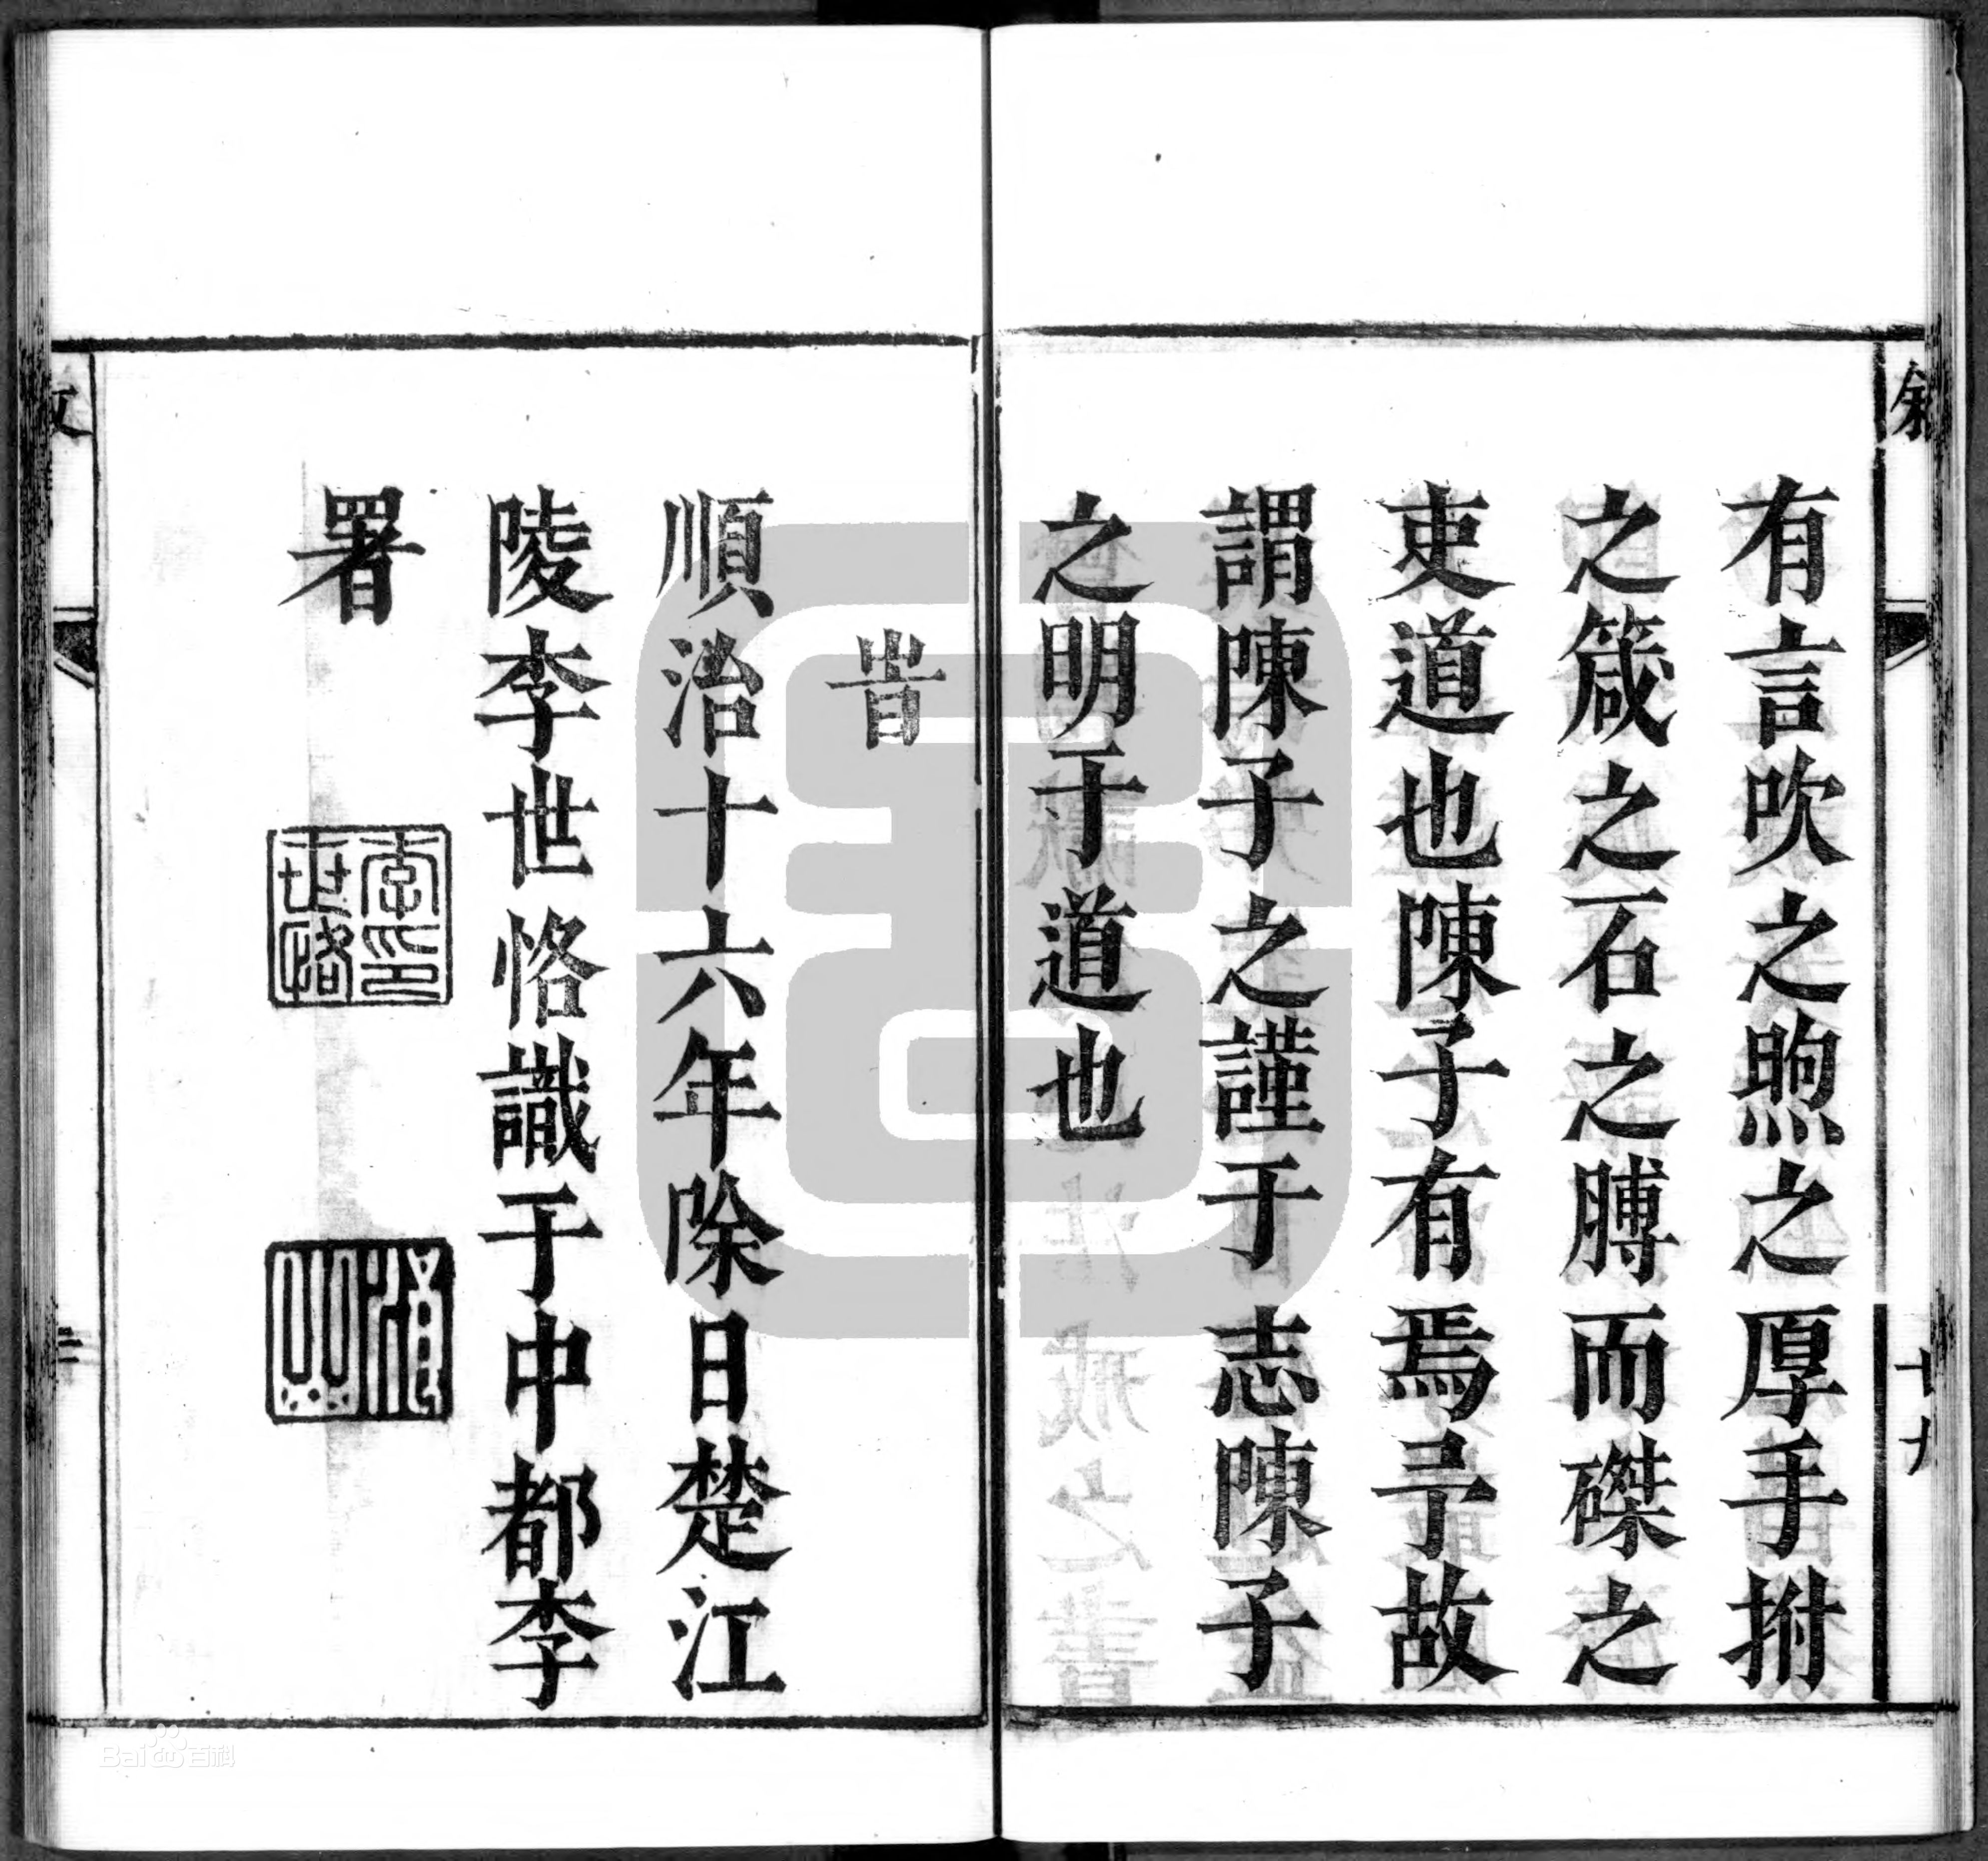 有言吹之煦之厚手拊
之箴之石之膊而磔之
吏道也陳子有焉㝵故
謂陳子之謹于志陳子
之明于道也
旹
順治十六年除日楚江
陵李世恪識于中都李
署
敘
廿九
李印世恪
Baidu百科